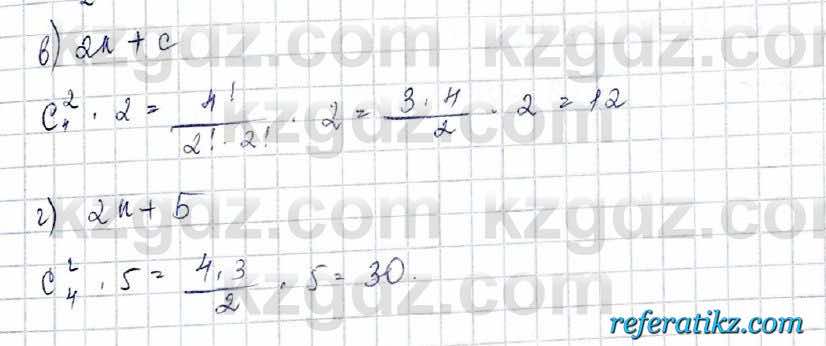 в) 2к + с
C₄² · 2 = 4! / (2! · 2!) · 2 = (3 · 4) / 2 · 2 = 12
г) 2к + Б
C₄² · 5 = (4 · 3) / 2 · 5 = 30.
kzgdz.com kzgdz.com
kzgdz.com
kzgdz.com kzgdz.com
kzgdz.com
referatikz.com